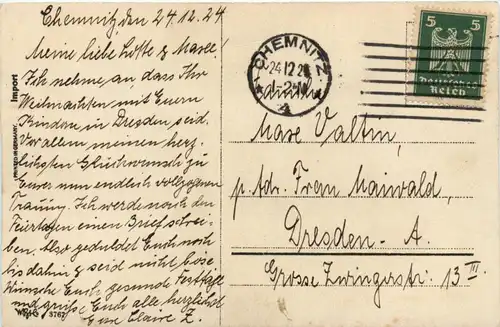 Chemnitz, den 24.12.24.
Meine liebe Lotte & Maxel!
Ich nehme an, dass Ihr
Weihnachten mit Euern
Kindern in Dresden seid.
Vor allem meinen herz-
lichsten Glückwunsch zu
Eurer nun endlich vollzogenen
Trauung. Ich werde nach den
Feiertagen einen Brief schrei-
ben. Also geduldet Euch noch
bis dahin & seid nicht böse.
Wünsche Euch gesunde Festtage
und grüße Euch alle herzlichst
Eure Claire Z.
Import
PRINTED IN GERMANY
3762
CHEMNITZ
24.12.24
A
5 5
Deutsches
Reich
Familie
Max Valtin,
p. Adr. Frau Maiwald,
Dresden-A.
Grosse Zwingerstr. 13 III